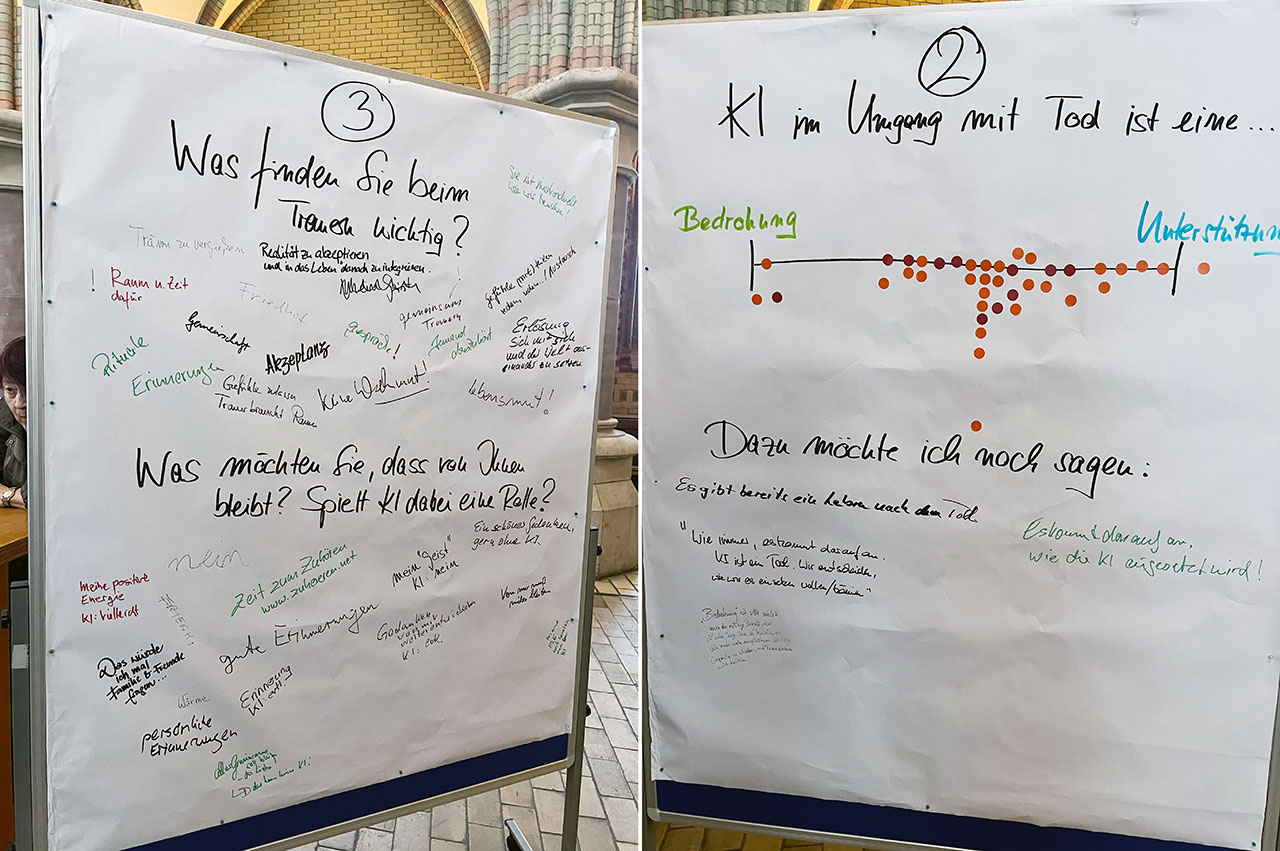 3
Was finden Sie beim
Trauern wichtig?
Tränen zu vergießen
Realität zu akzeptieren
und in das Leben danach zu integrieren.
! Raum u. Zeit
dafür
Friedhof
gemeinsam
Trauern
Rituale
Gemeinschaft
Akzeptanz
Gespräche!
Jemand
Erlösung
Sich mit sich
und der Welt aus-
einander zu setzen
Erinnerungen
Gefühle zulassen
Trauer braucht Raum
Keine Wehmut!
Lebensmut!
Was möchten Sie, dass von Ihnen
bleibt? Spielt KI dabei eine Rolle?
nein
Meine positive
Energie
KI: Vielleicht
Zeit zum Zuhören
www.zuhoeren.net
mein "Geist"
KI: nein
Ein schöner Gedanken,
gern ohne KI.
gute Erinnerungen
Gedanken
von mir
weiterentwickeln
KI: evtl.
Von mir muss
nichts bleiben
Das würde
ich mal
Familie & Freunde
fragen...
Wärme
Erinnerung
KI: evtl.
persönliche
Erinnerungen
2
KI im Umgang mit Tod ist eine...
Bedrohung
Unterstützun
Dazu möchte ich noch sagen:
Es gibt bereits ein Leben nach dem Tod.
"Wie immer, es kommt darauf an.
KI ist ein Tool. Wir entscheiden,
wie wir es einsetzen wollen/können"
Es kommt darauf an,
wie die KI eingesetzt wird!
"Bedrohung" ist vllt nicht